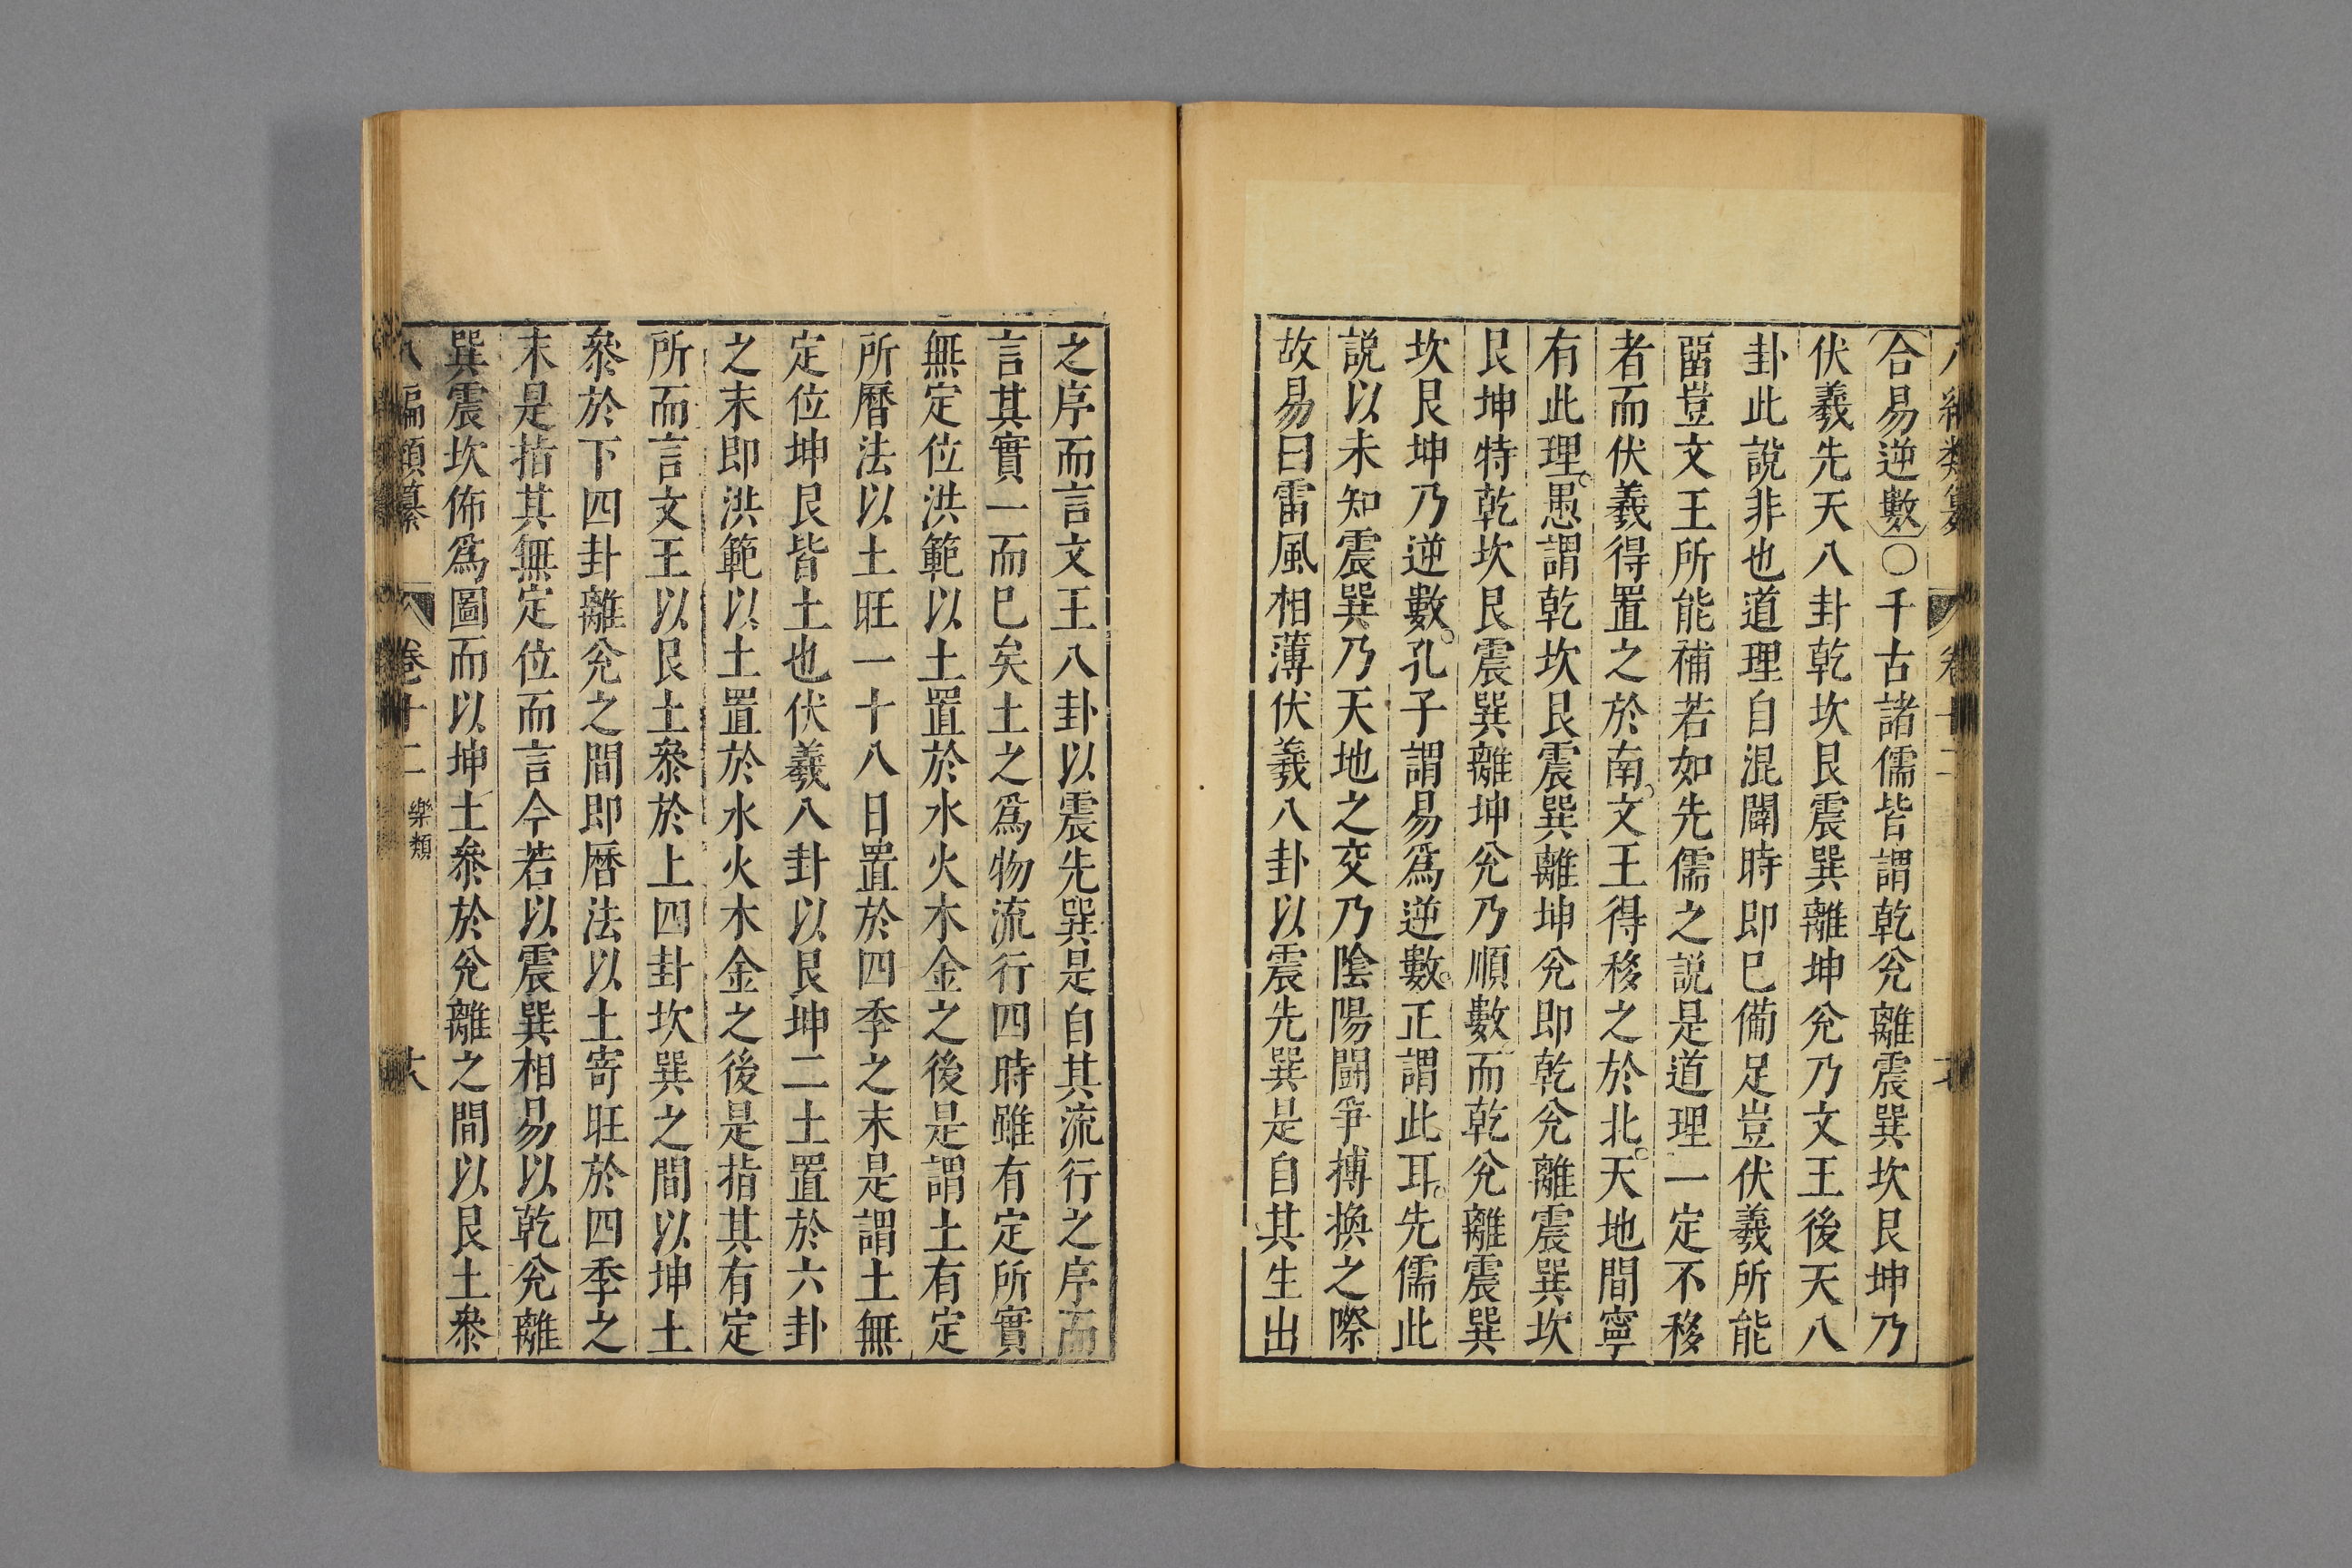 合易逆數○千古諸儒皆謂乾兊離震巽坎艮坤乃
伏羲先天八卦乾坎艮震巽離坤兊乃文王後天八
卦此說非也道理自混闢時即已備足豈伏羲所能
畱豈文王所能補若如先儒之說是道理一定不移
者而伏羲得置之於南。文王得移之於北。天地間寧
有此理。愚謂乾坎艮震巽離坤兊即乾兊離震巽坎
艮坤特乾坎艮震巽離坤兊乃順數而乾兊離震巽
坎艮坤乃逆數。孔子謂易爲逆數。正謂此耳。先儒此
說以未知震巽乃天地之交乃陰陽鬪爭搏換之際
故易曰雷風相薄伏羲八卦以震先巽是自其生出
之序而言文王八卦以震先巽是自其流行之序而
言其實一而巳矣土之爲物流行四時雖有定所實
無定位洪範以土置於水火木金之後是謂土有定
所曆法以土旺一十八日置於四季之末是謂土無
定位坤艮皆土也伏羲八卦以艮坤二土置於六卦
之末即洪範以土置於水火木金之後是指其有定
所而言文王以艮土叅於上四卦坎巽之間以坤土
叅於下四卦離兊之間即曆法以土寄旺於四季之
末是指其無定位而言今若以震巽相易以乾兊離
巽震坎佈爲圖而以坤土叅於兊離之間以艮土叅
八編類纂 卷十二 樂類